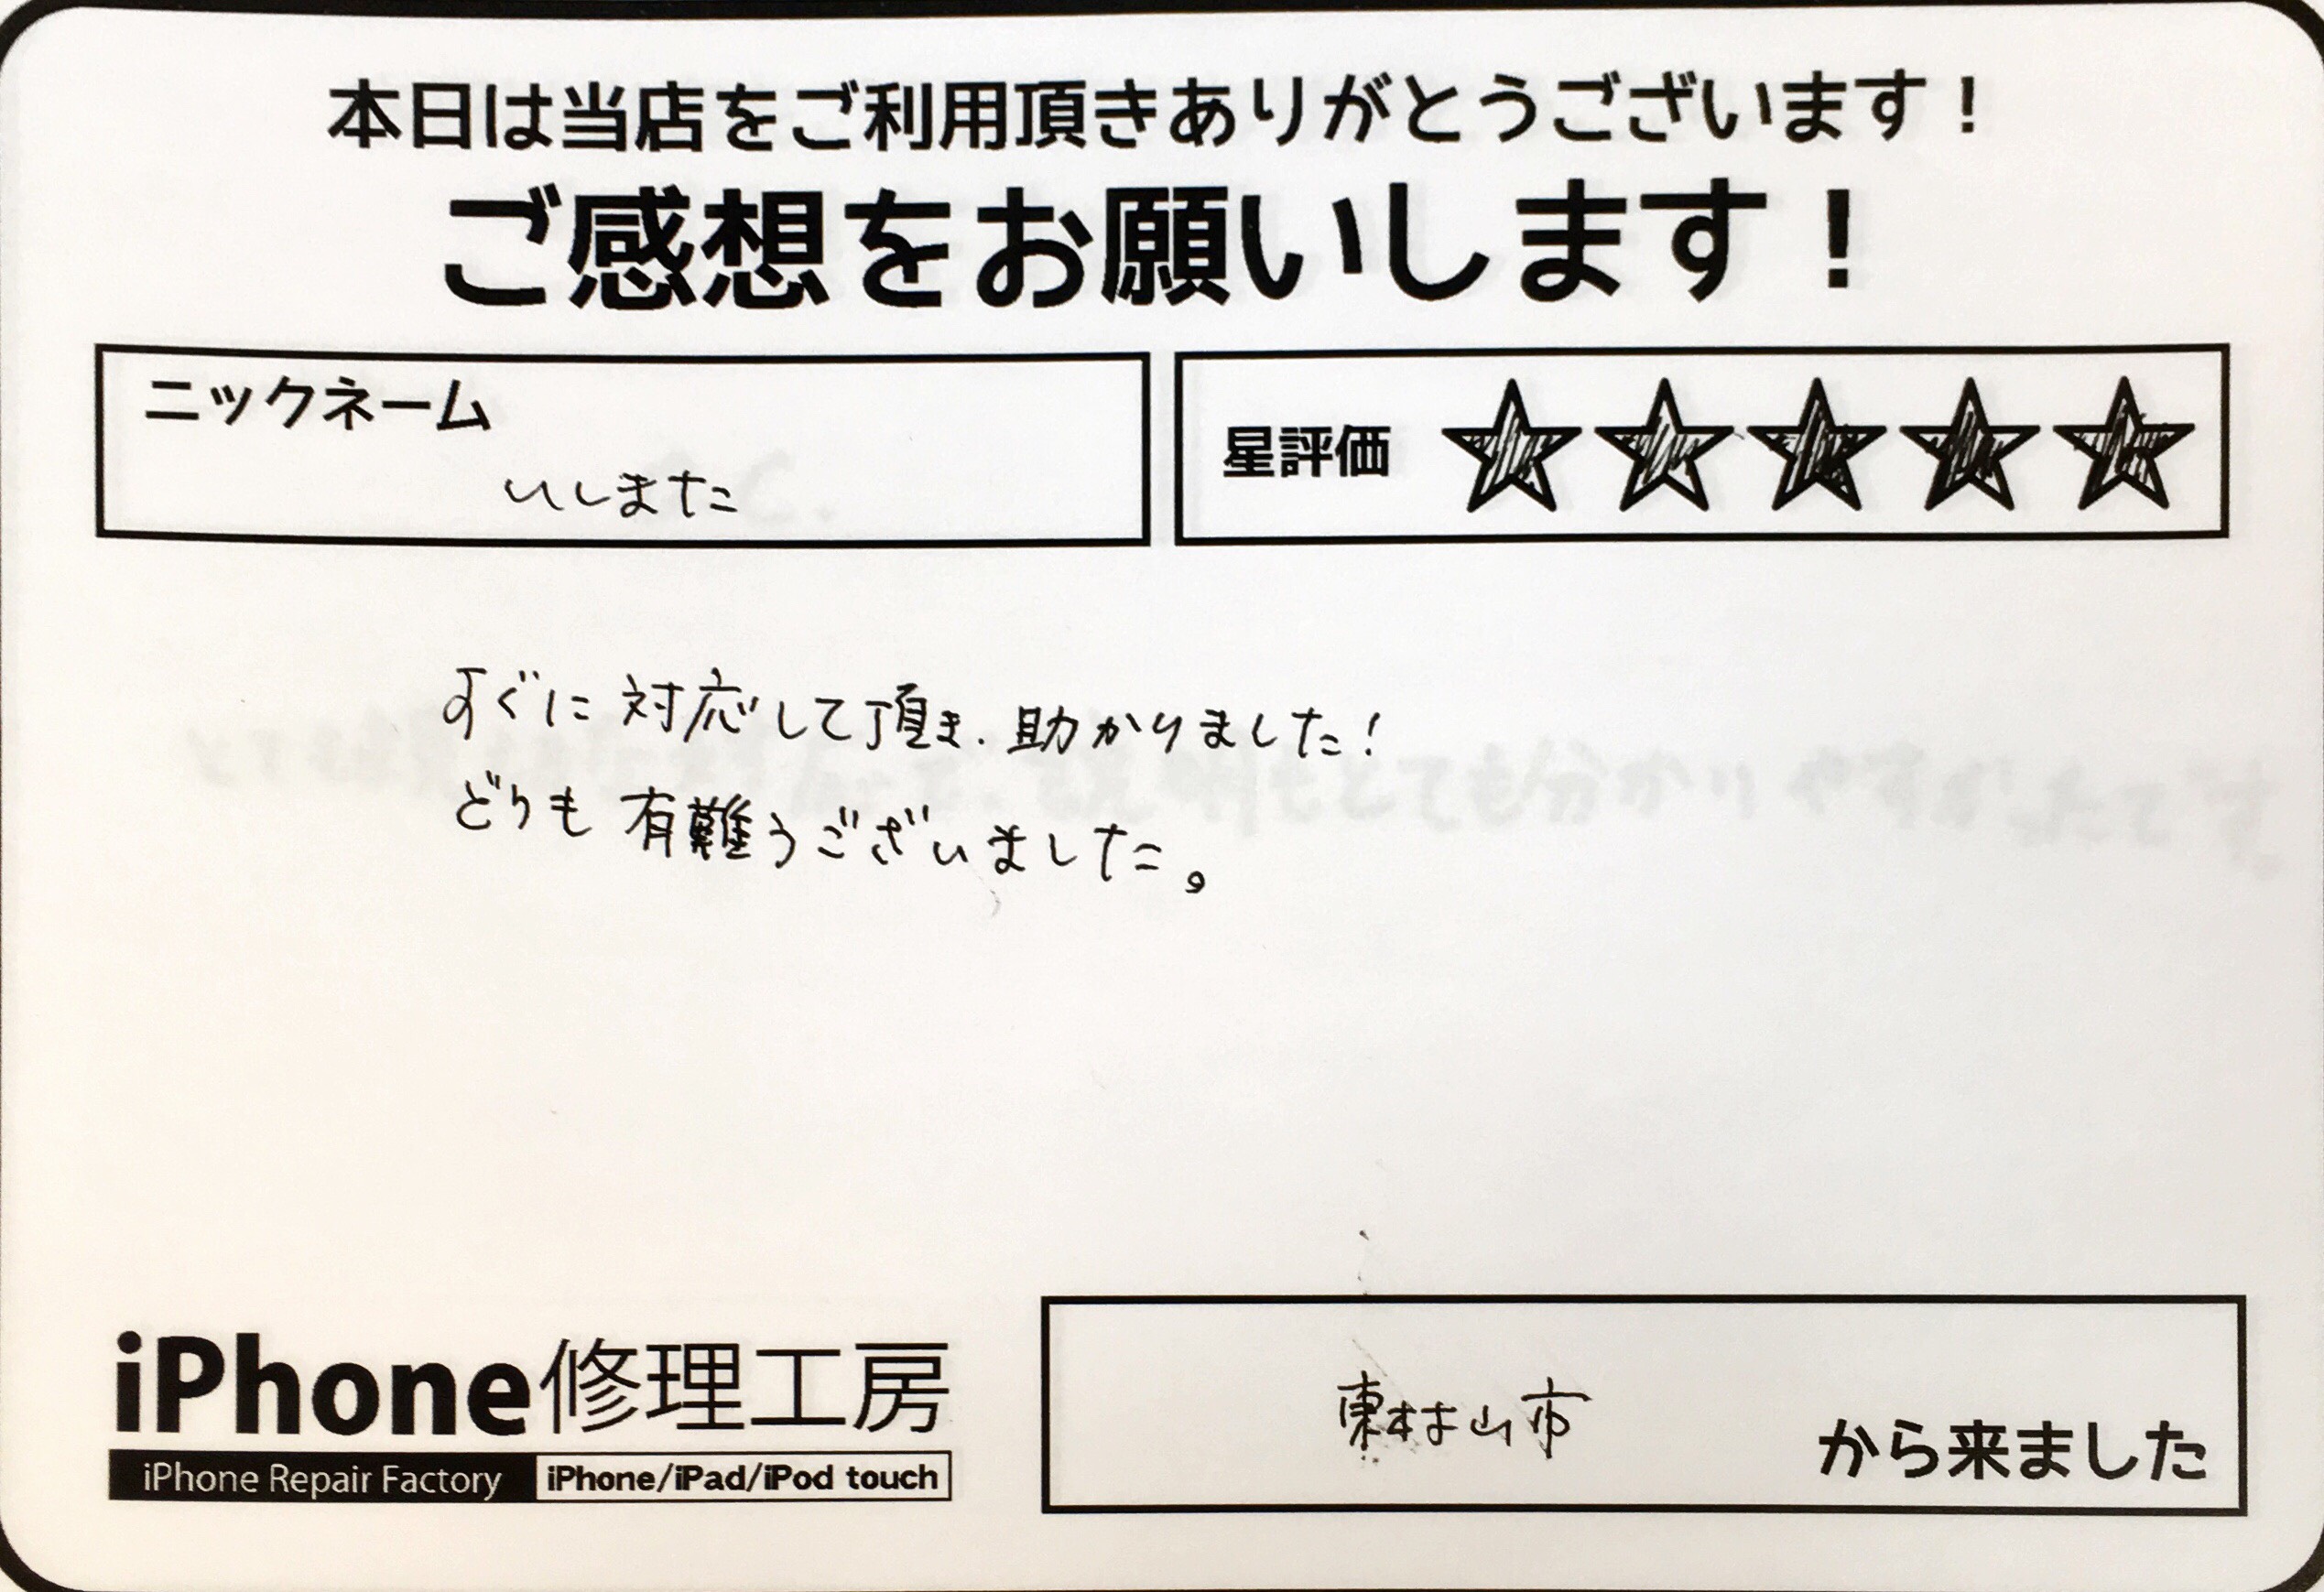 本日は当店をご利用頂きありがとうございます！
ご感想をお願いします！
ニックネーム
いしまた
星評価 ★★★★★
すぐに対応して頂き、助かりました！
どうも有難うございました。
iPhone修理工房
iPhone Repair Factory iPhone/iPad/iPod touch
東村山市 から来ました